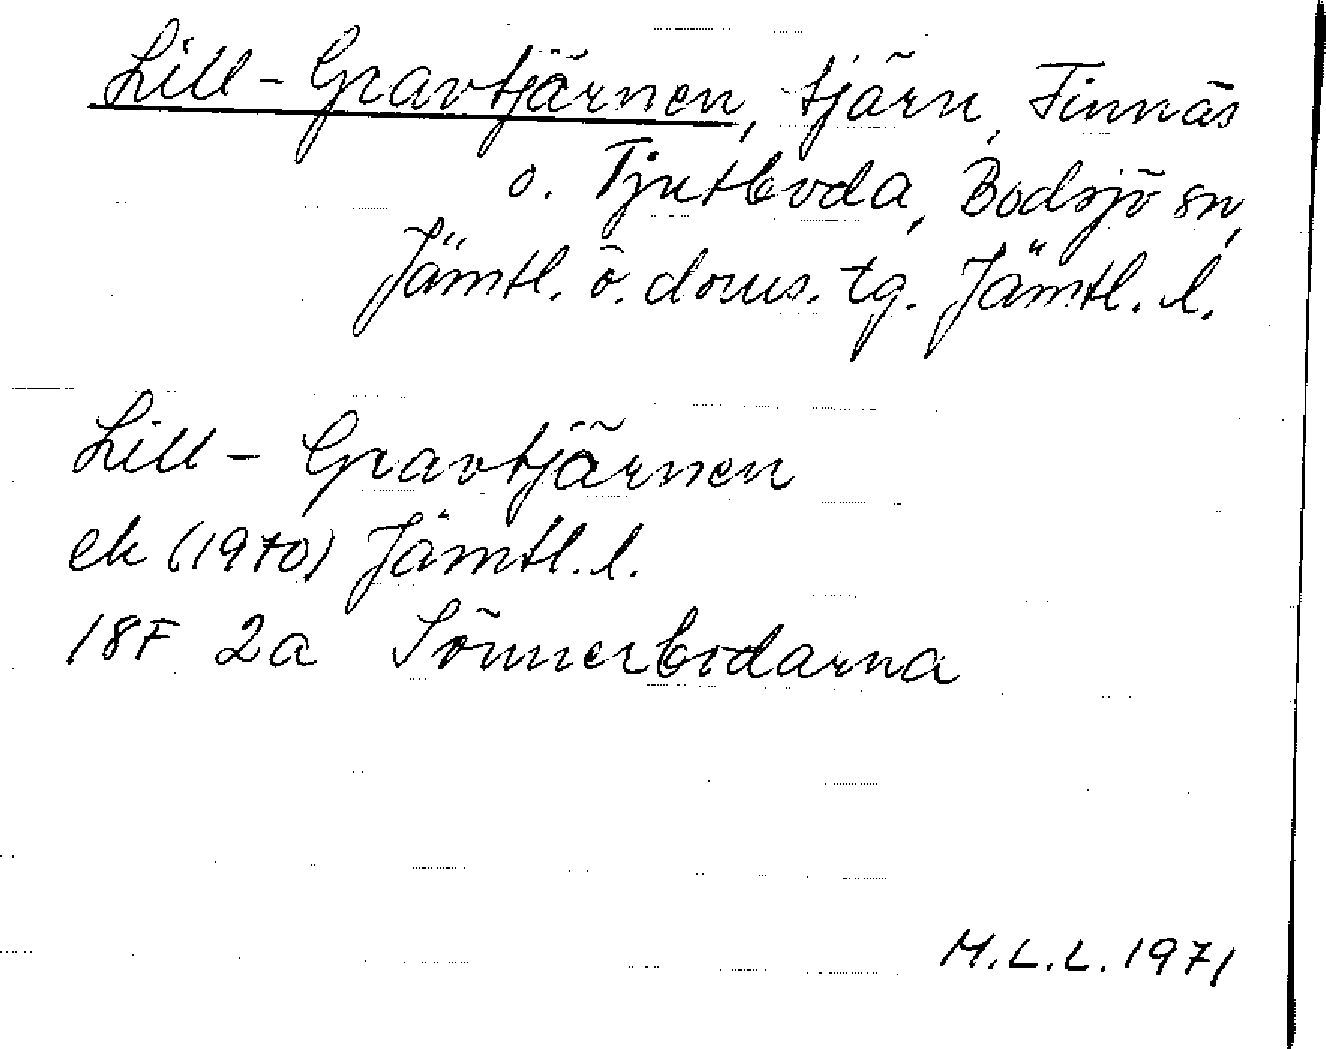 Lill-Gravtjärnen, tjärn, Finnäs
o. Tjutboda, Bodsjö sn,
Jämtl. ö. doms. tg. Jämtl. l.
Lill-Gravtjärnen
ek (1970) Jämtl. l.
18F 2a Sönnerbodarna
M.L.L. 1971